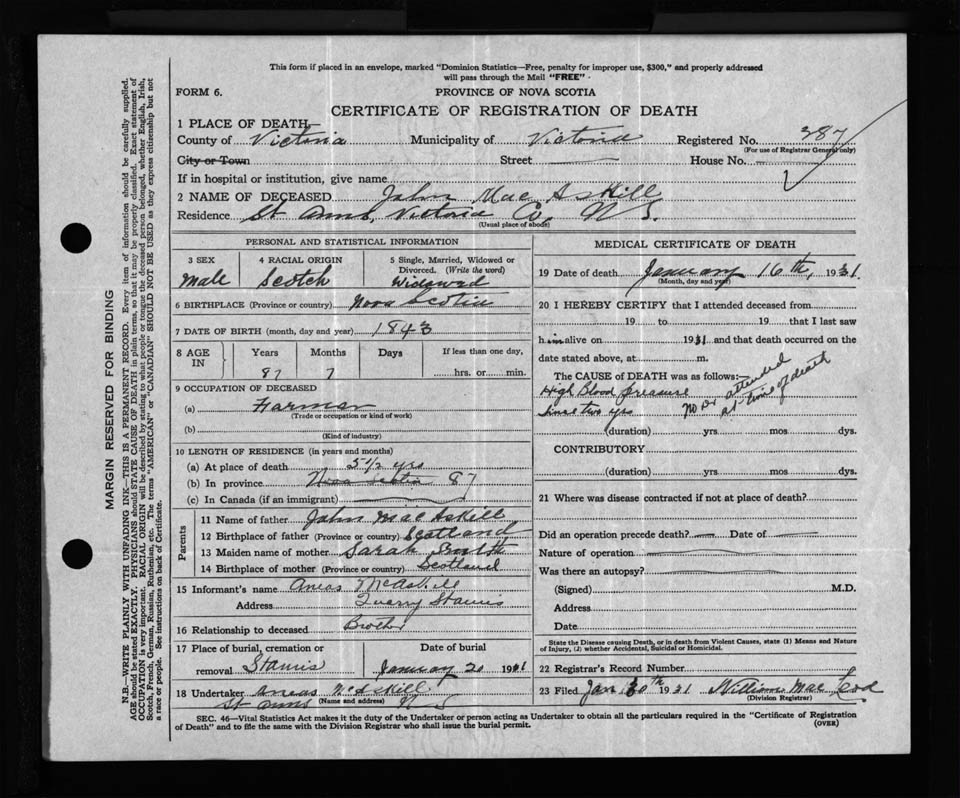 This form if placed in an envelope, marked "Dominion Statistics—Free, penalty for improper use, $300," and properly addressed
will pass through the Mail "FREE"
FORM 6.
PROVINCE OF NOVA SCOTIA
CERTIFICATE OF REGISTRATION OF DEATH
1 PLACE OF DEATH—
County of Victoria Municipality of Victoria Registered No. 387
(For use of Registrar General only)
City or Town Street House No.
If in hospital or institution, give name
2 NAME OF DECEASED John Mac Askill
Residence St Anns, Victoria Co, N S.
(Usual place of abode)
PERSONAL AND STATISTICAL INFORMATION
3 SEX
male
4 RACIAL ORIGIN
Scotch
5 Single, Married, Widowed or Divorced. (Write the word)
Widowed
6 BIRTHPLACE (Province or country) Nova Scotia
7 DATE OF BIRTH (month, day and year) 1843
8 AGE IN
Years Months Days If less than one day,
87 7 hrs. or min.
9 OCCUPATION OF DECEASED
(a) Farmer
(Trade or occupation or kind of work)
(b)
(Kind of industry)
10 LENGTH OF RESIDENCE (in years and months)
(a) At place of death 51/2 yrs
(b) In province Nova Scotia 87
(c) In Canada (if an immigrant)
Parents
11 Name of father John MacAskill
12 Birthplace of father (Province or country) Scotland
13 Maiden name of mother Sarah Smith
14 Birthplace of mother (Province or country) Scotland
15 Informant's name Aneas McAskill
Address
16 Relationship to deceased Brother
17 Place of burial, cremation or removal Stanns
Date of burial
January 20 1931
18 Undertaker Aneas McAskill
(Name and address)
St Anns N S
MEDICAL CERTIFICATE OF DEATH
19 Date of death January 16th, 1931
(Month, day and year)
20 I HEREBY CERTIFY that I attended deceased from
19 to 19 that I last saw
him alive on 1931 and that death occurred on the
date stated above, at m.
The CAUSE of DEATH was as follows:—
High Blood pressure
since two yrs
no Dr attended
at time of death
(duration) yrs mos dys.
CONTRIBUTORY
(duration) yrs mos dys.
21 Where was disease contracted if not at place of death?
Did an operation precede death? Date of
Nature of operation
Was there an autopsy?
(Signed) M.D.
Address
Date
State the Disease causing Death, or in death from Violent Causes, state (1) Means and Nature
of Injury, (2) whether Accidental, Suicidal or Homicidal.
22 Registrar's Record Number
23 Filed Jan 30th 1931 William MacLeod
(Division Registrar)
SEC. 46—Vital Statistics Act makes it the duty of the Undertaker or person acting as Undertaker to obtain all the particulars required in the "Certificate of Registration
of Death" and to file the same with the Division Registrar who shall issue the burial permit.
(OVER)
MARGIN RESERVED FOR BINDING
N.B.—WRITE PLAINLY WITH UNFADING INK—THIS IS A PERMANENT RECORD. Every item of information should be carefully supplied.
AGE should be stated EXACTLY. PHYSICIANS should STATE CAUSE OF DEATH in plain terms, so that it may be properly classified. Exact statement of
OCCUPATION is very important. RACIAL ORIGIN will be described by stating to what people or tongue the deceased person belonged, whether English, Irish,
Scotch, French, German, Russian, Ruthenian, etc. The terms "AMERICAN" or "CANADIAN" SHOULD NOT BE USED as they express citizenship but not
a race or people. See instructions on back of Certificate.